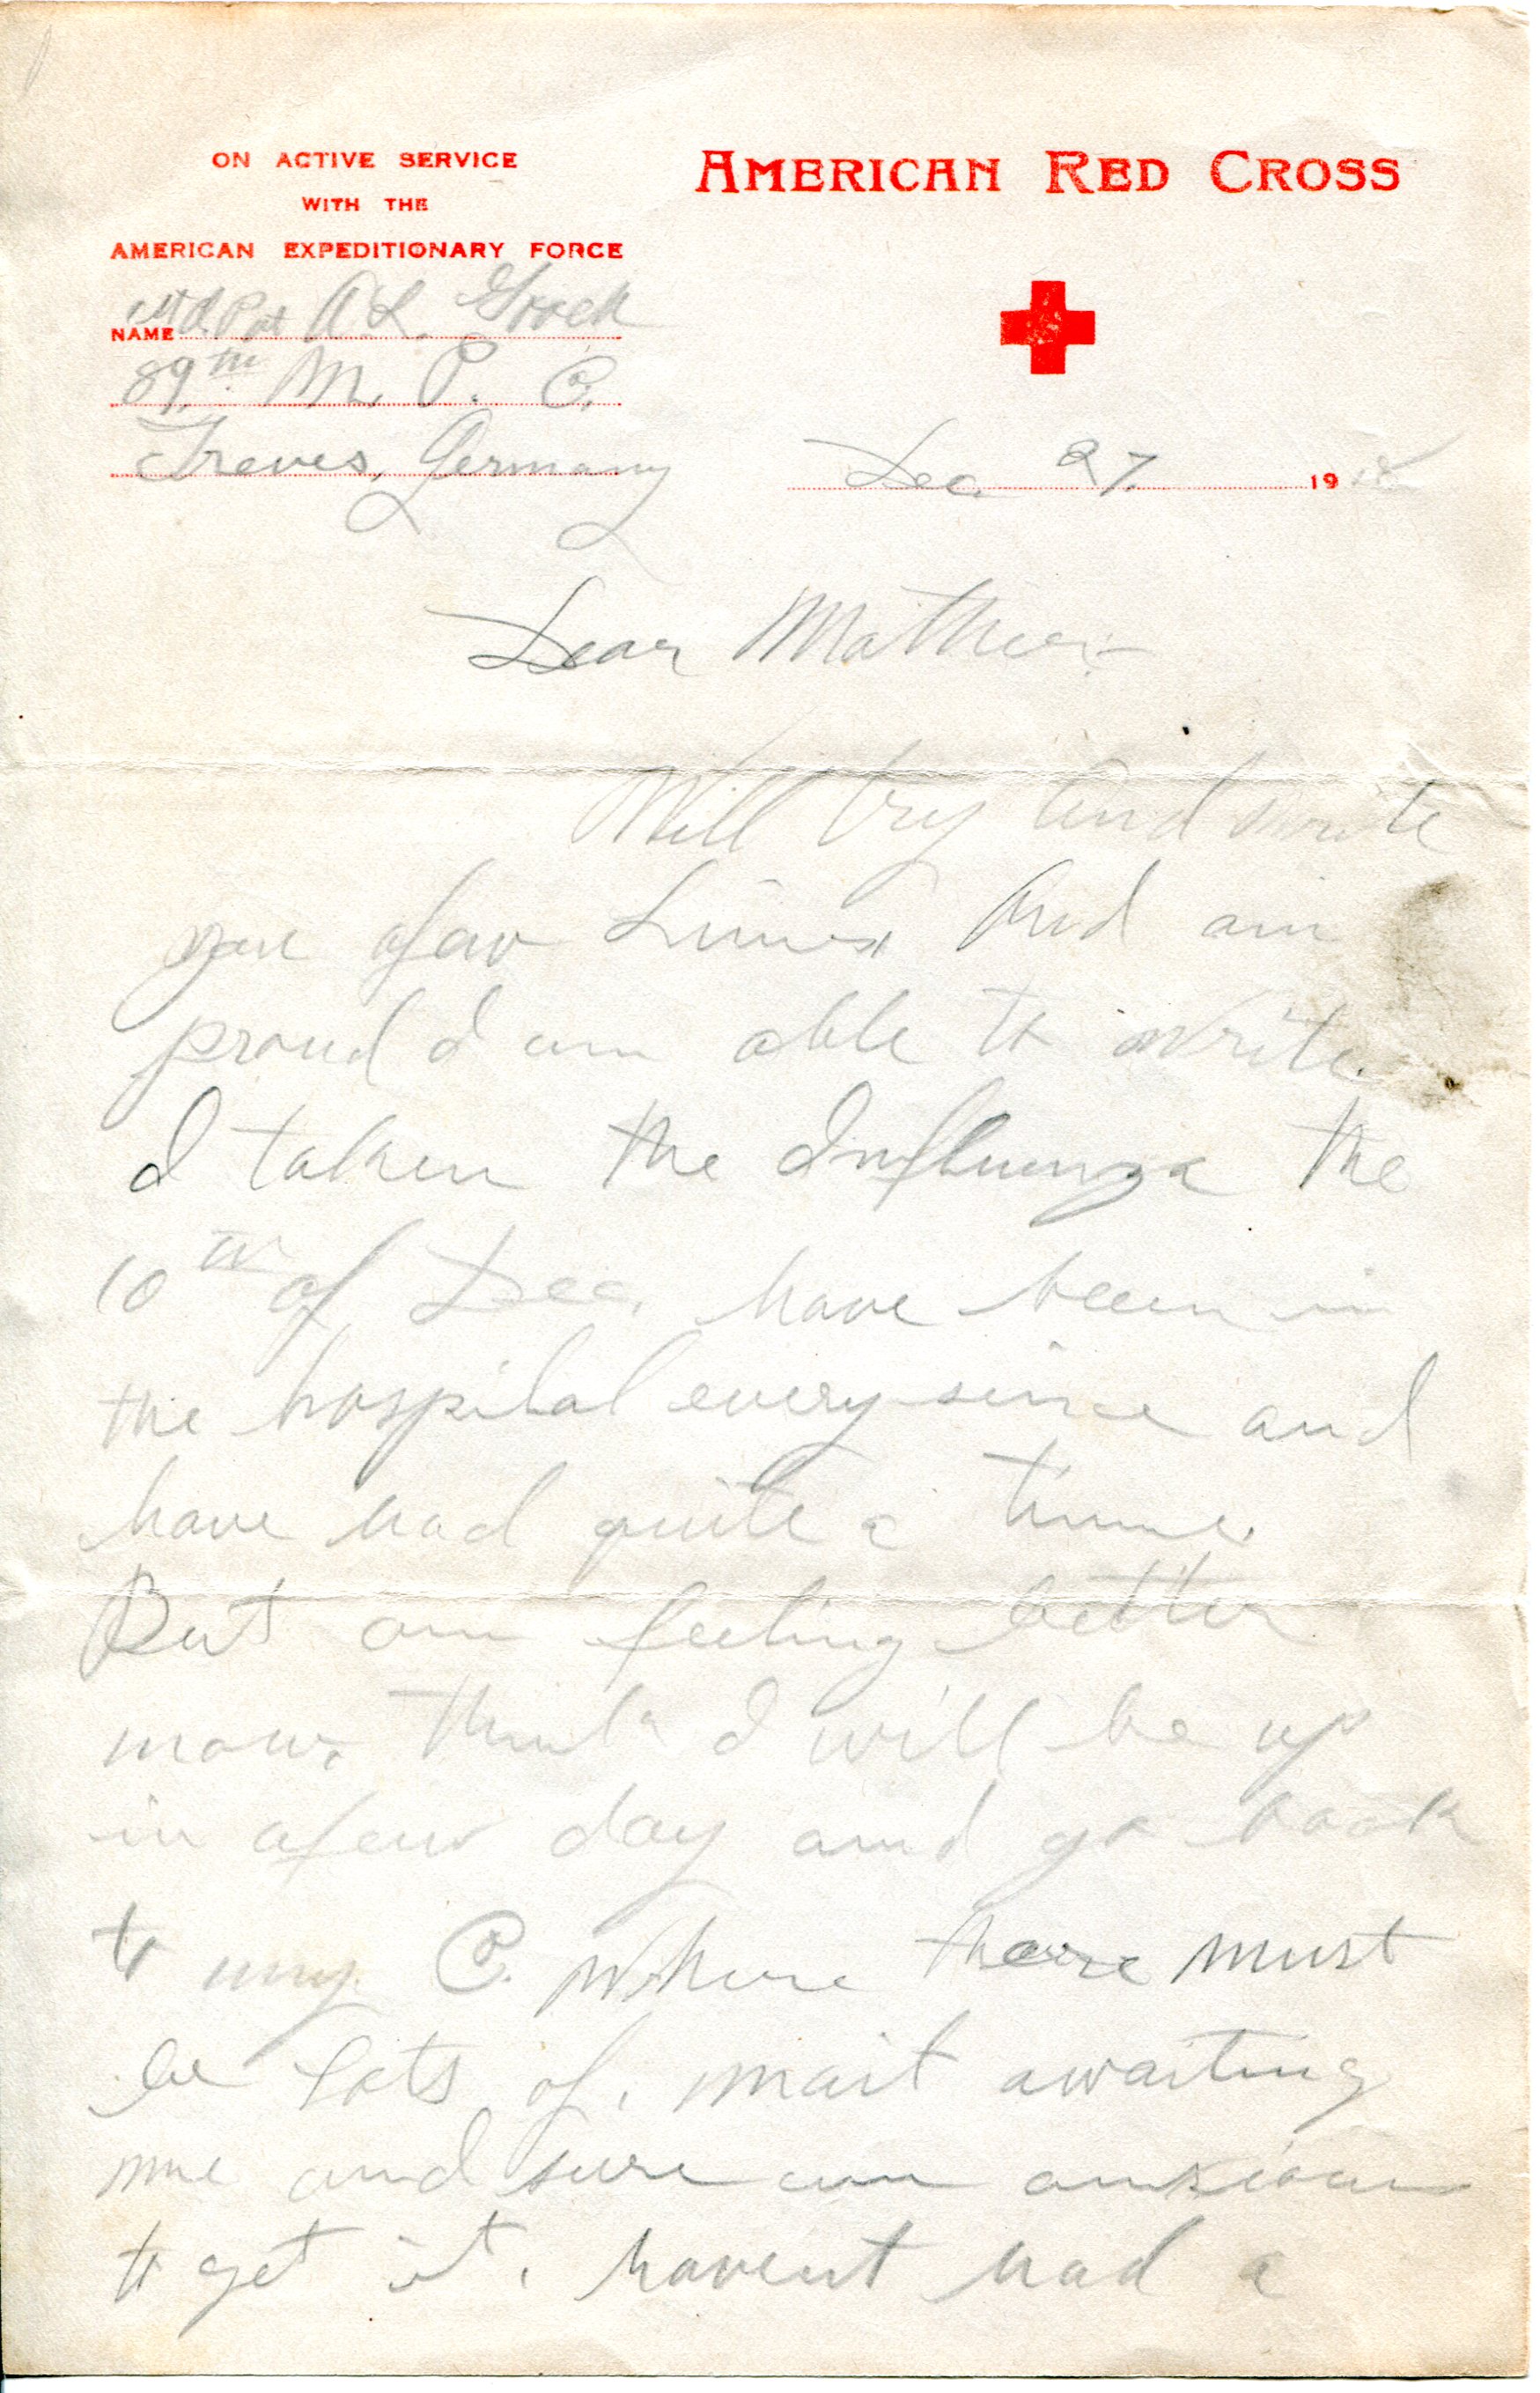 ON ACTIVE SERVICE
WITH THE
AMERICAN EXPEDITIONARY FORCE
AMERICAN RED CROSS
NAME A. L.
89th M. P. C.
Treves, Germany
Dec. 27. 1918
Dear Mother:-
Will try and write
you afew Lines, And am
proud I am able to write.
I taken the Influenza the
10th of Dec. have been in
the hospital every since and
have had quite a time.
But am feeling better
now. think I will be up
in afew day and go back
to my C. Where there must
be lots of mail awaiting
me and sure am anxious
to get it. havent had a